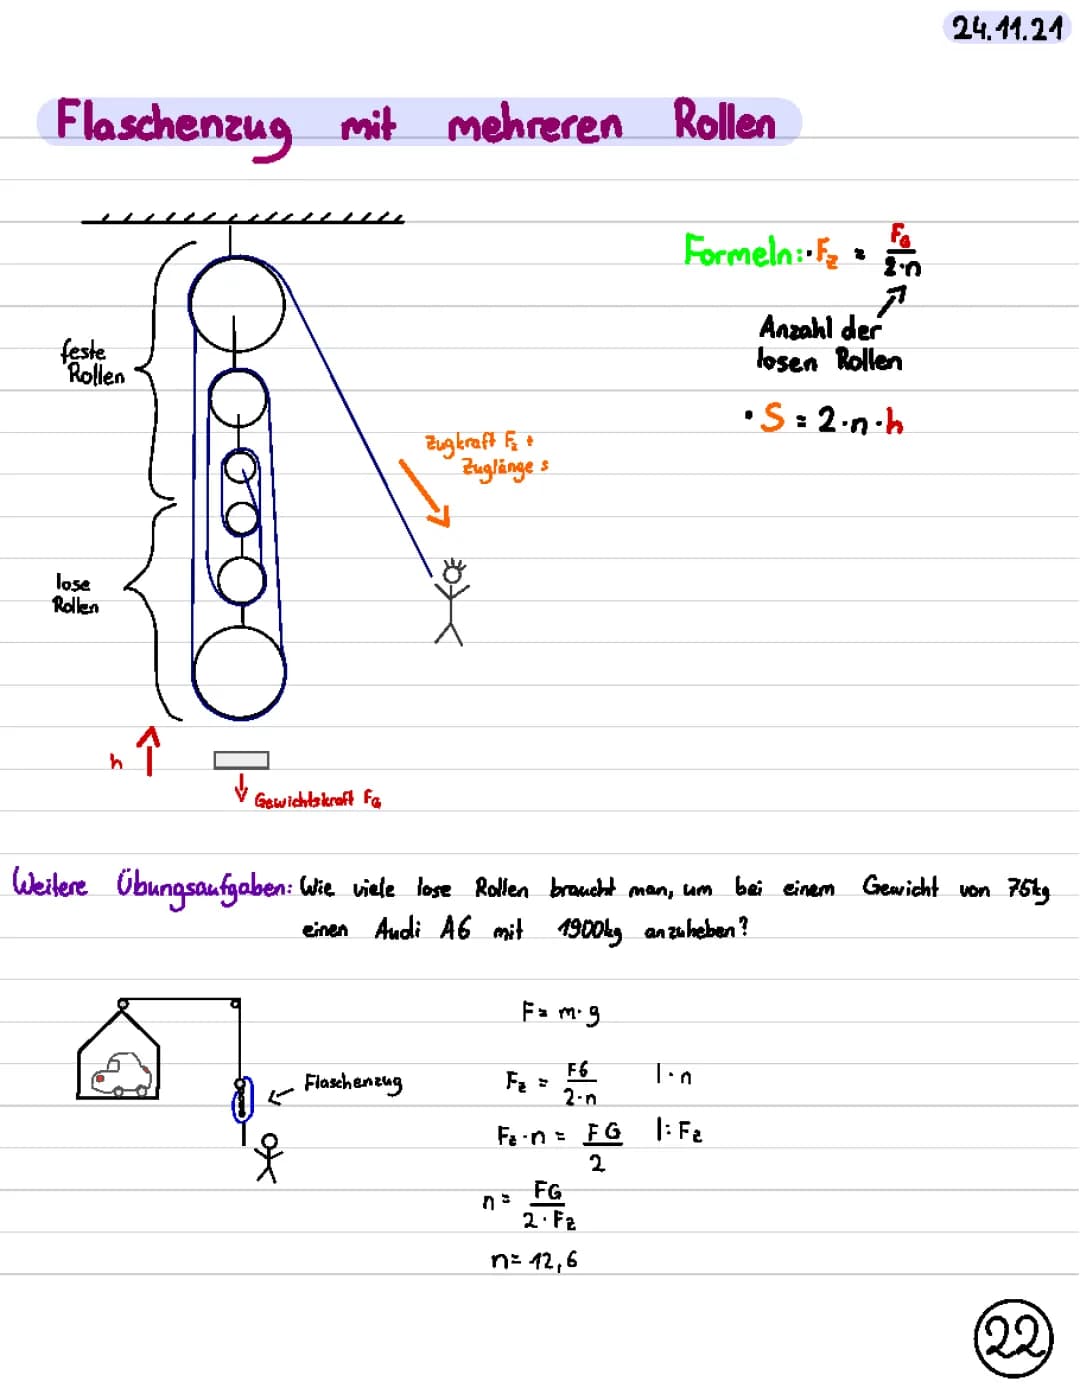 24.11.21
Flaschenzug mit mehreren Rollen
Formeln: · Fz = FG / 2·n
Anzahl der
losen Rollen
· S = 2·n·h
feste
Rollen
Zugkraft Fz +
Zuglänge s
lose
Rollen
h
Gewichtskraft FG
Weitere Übungsaufgaben: Wie viele lose Rollen braucht man, um bei einem Gewicht von 75kg
einen Audi A6 mit 1900kg anzuheben?
F = m·g
Flaschenzug
Fz = FG / 2·n |·n
Fz·n = FG / 2 |:Fz
n = FG / 2·Fz
n = 12,6
22